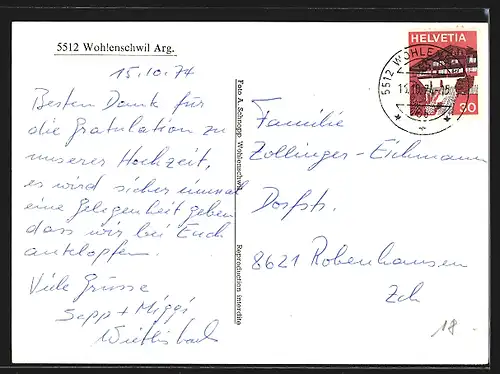 5512 Wohlenschwil Arg.
15.10.74
Besten Dank für
die Gratulation zu
unserer Hochzeit,
es wird sicher einmal
eine Gelegenheit geben
dass wir bei Euch
anklopfen.
Viele Grüsse
Sepp + Miggi
Foto A. Schnopp Wohlenschwil
Reproduction interdite
HELVETIA
30
5512 WOHLEN
Familie
Zollinger-Eichmann
Dorfstr.
8621 Robenhausen
Zch
18.-